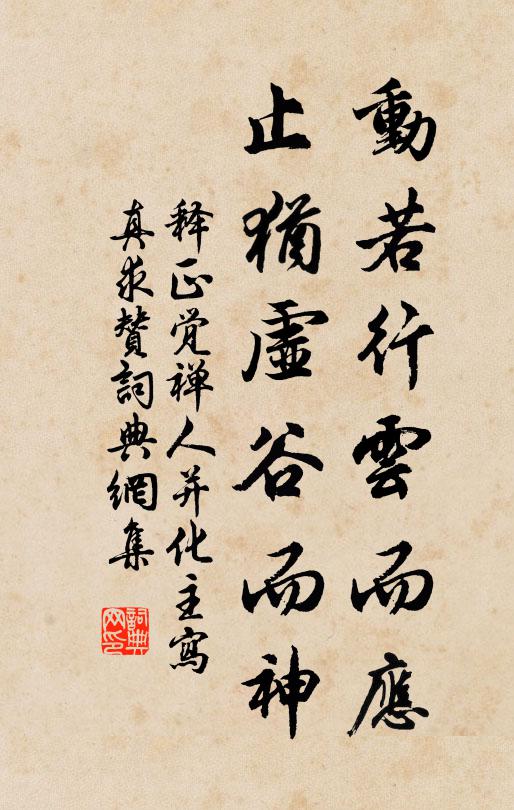 動若行雲而應
止猶虛谷而神
释正觉禅人并化主寫
真求贊詞典網集
詞典网印